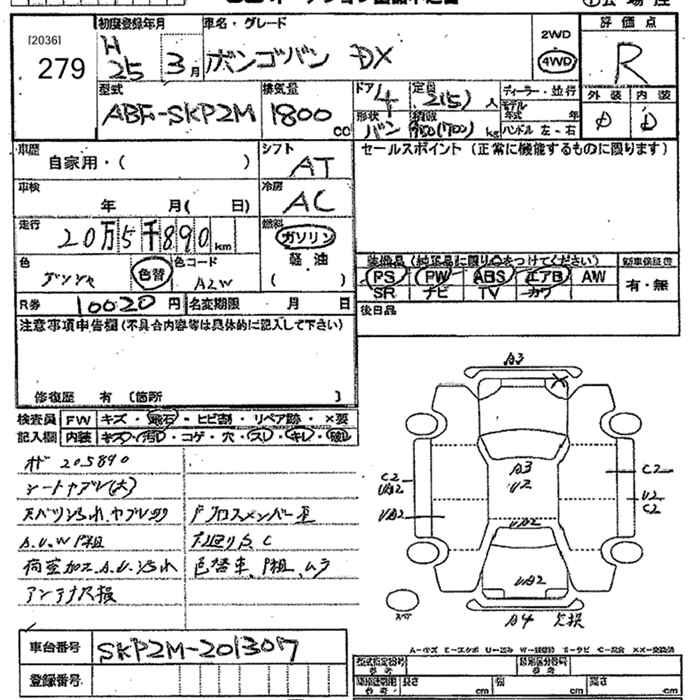 [2036]
279
初度登録年月
H 25 3月
車名・グレード
ボンゴバン DX
2WD
4WD
評価点
R
型式
ABF-SKP2M
排気量
1800 cc
ドア 4
形状 バン
定員 2(5)人
積載 kg
ディーラー・並行
モデル年式 年
ハンドル 左・右
外装 内装
D D
車歴
自家用・( )
シフト
AT
セールスポイント(正常に機能するものに限ります)
車検
年 月( 日)
冷房
AC
走行
20万5千890km
燃料
ガソリン
軽油
( )
色
色替
色コード
A2W
装備品(純正品に限り○をつけてください)
PS PW ABS エアB AW
SR ナビ TV カワ
新車保証書
有・無
R券 10020円
名変期限 月 日
後日品
注意事項申告欄(不具合内容等は具体的に記入して下さい)
修復歴 有 〔箇所 〕
検査員記入欄
FW キズ・飛石・ヒビ割・リペア跡・×要
内装 キズ・汚れ・コゲ・穴・スレ・キレ・
205890
シートヤブレ(大)
A.U.W P粗
アンテナ欠損
クロスメンバー歪
下廻りS,C
色替車、P粗、ムラ
A3
A3
U2
UA2
UA2
C2
UA2
UA2
C2
U2
C2
A4 欠損
車台番号 SKP2M-201307
登録番号
A-キズ E-エクボ U-凹み W-補修跡 S-サビ C-腐食 XX-交換済
型式指定番号 参考
類別区分番号 参考
参考 長さ cm 幅 cm 高さ cm